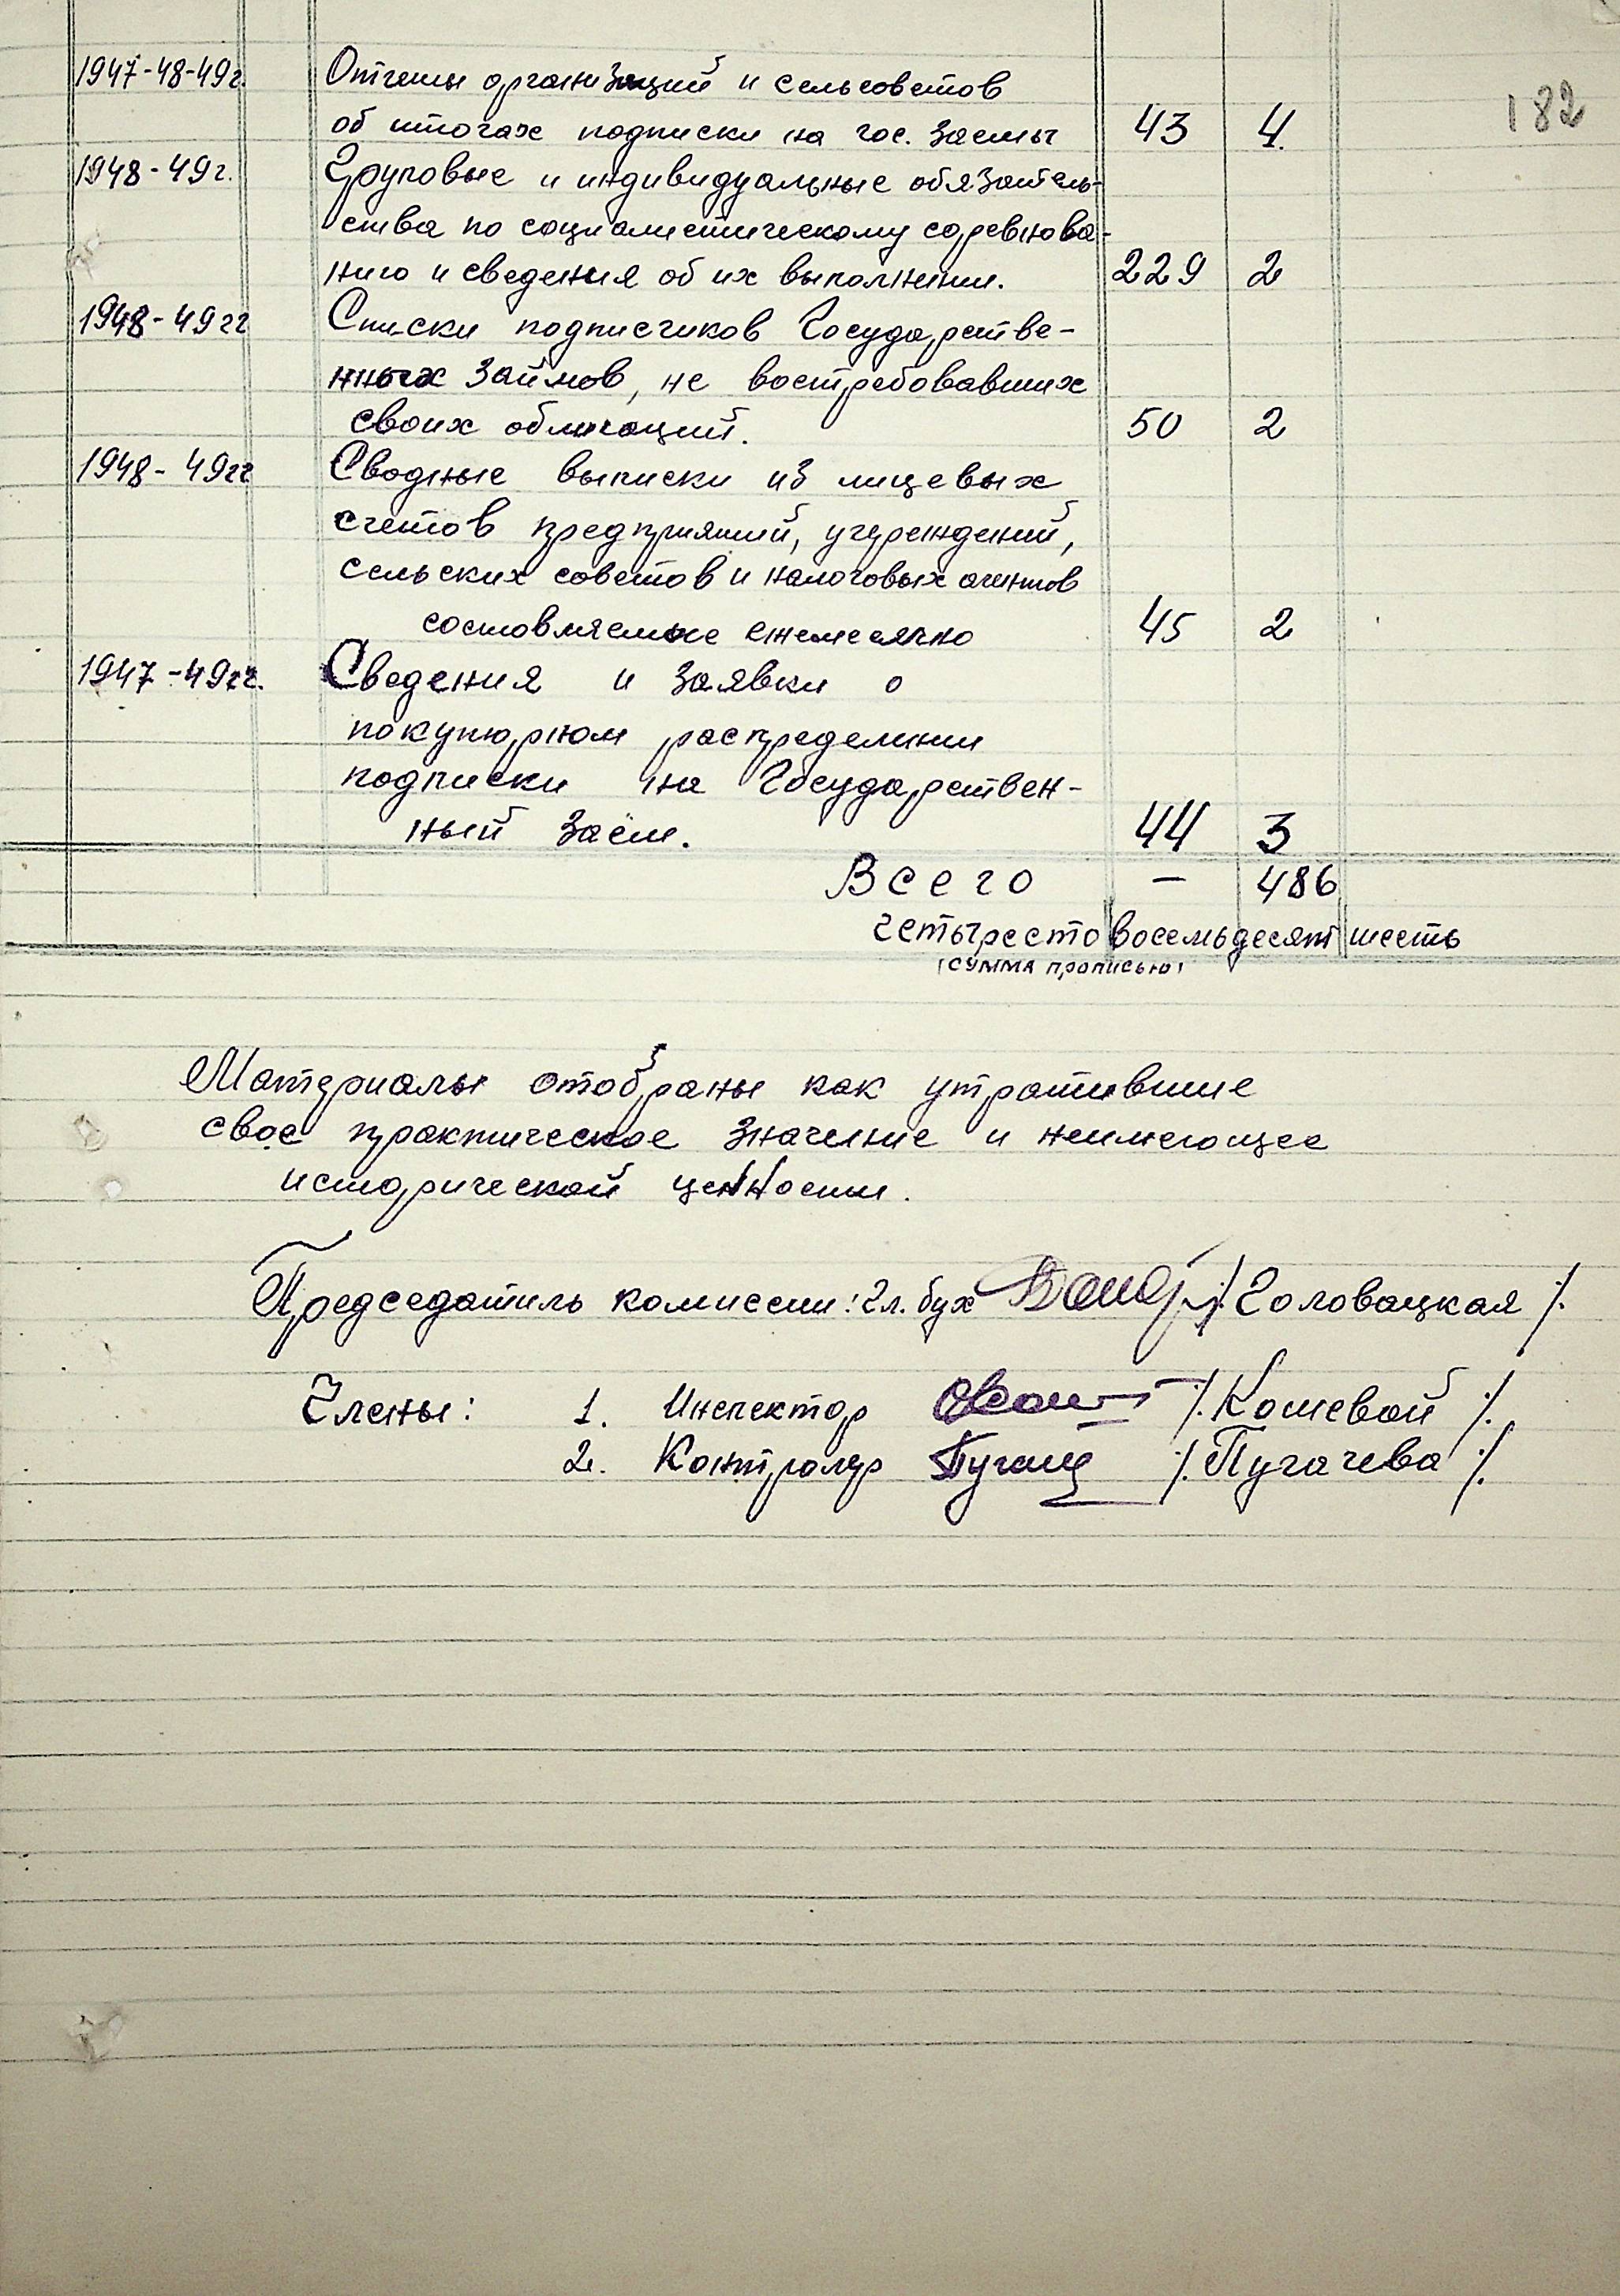 182
1947-48-49г. Отчеты организаций и сельсоветов
об итогах подписки на гос. заемы 43 4.
1948-49г. Груповые и индивидуальные обязатель-
ства по социалистическому соревнова-
нию и сведения об их выполнении. 229 2
1948-49гг Списки подписчиков Государстве-
нных займов, не востребовавших
своих облигаций. 50 2
1948-49гг Сводные выписки из лицевых
счетов предприятий, учреждений,
сельских советов и налоговых агентов
составляемые ежемесячно 45 2
1947-49гг. Сведения и заявки о
покупюрном распределении
подписки на Государствен-
ный заём. 44 3
Всего — 486
четыресто восемьдесят шесть
(сумма прописью)
Материалы отобраны как утратившие
свое практическое значение и неимеющее
исторической ценности.
Председатель комиссии: Гл. бух /Головацкая/.
Члены: 1. Инспектор /.Кошевой/.
2. Контролер /.Пугачева/.